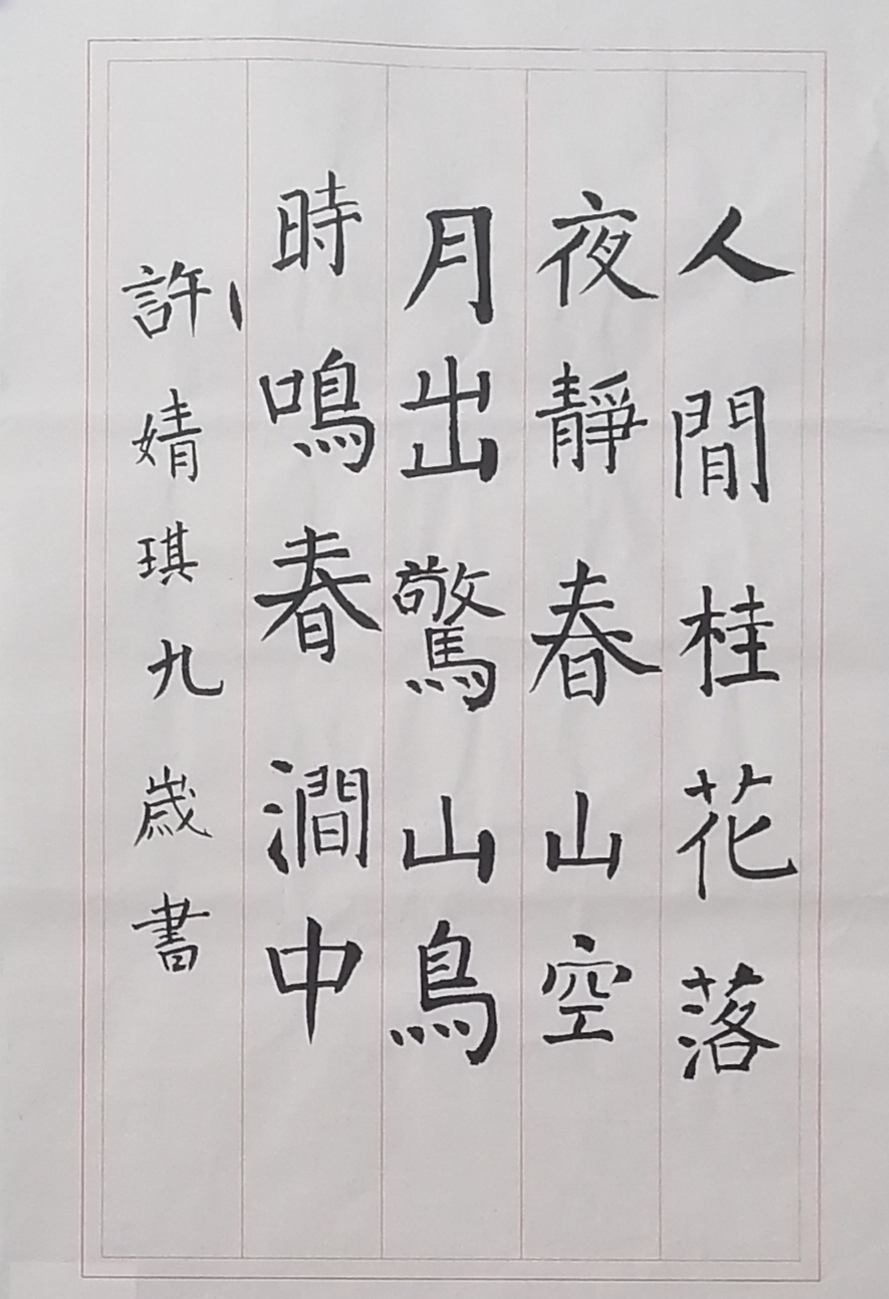 人間桂花落
夜靜春山空
月出驚山鳥
時鳴春澗中
許婧琪九歲書